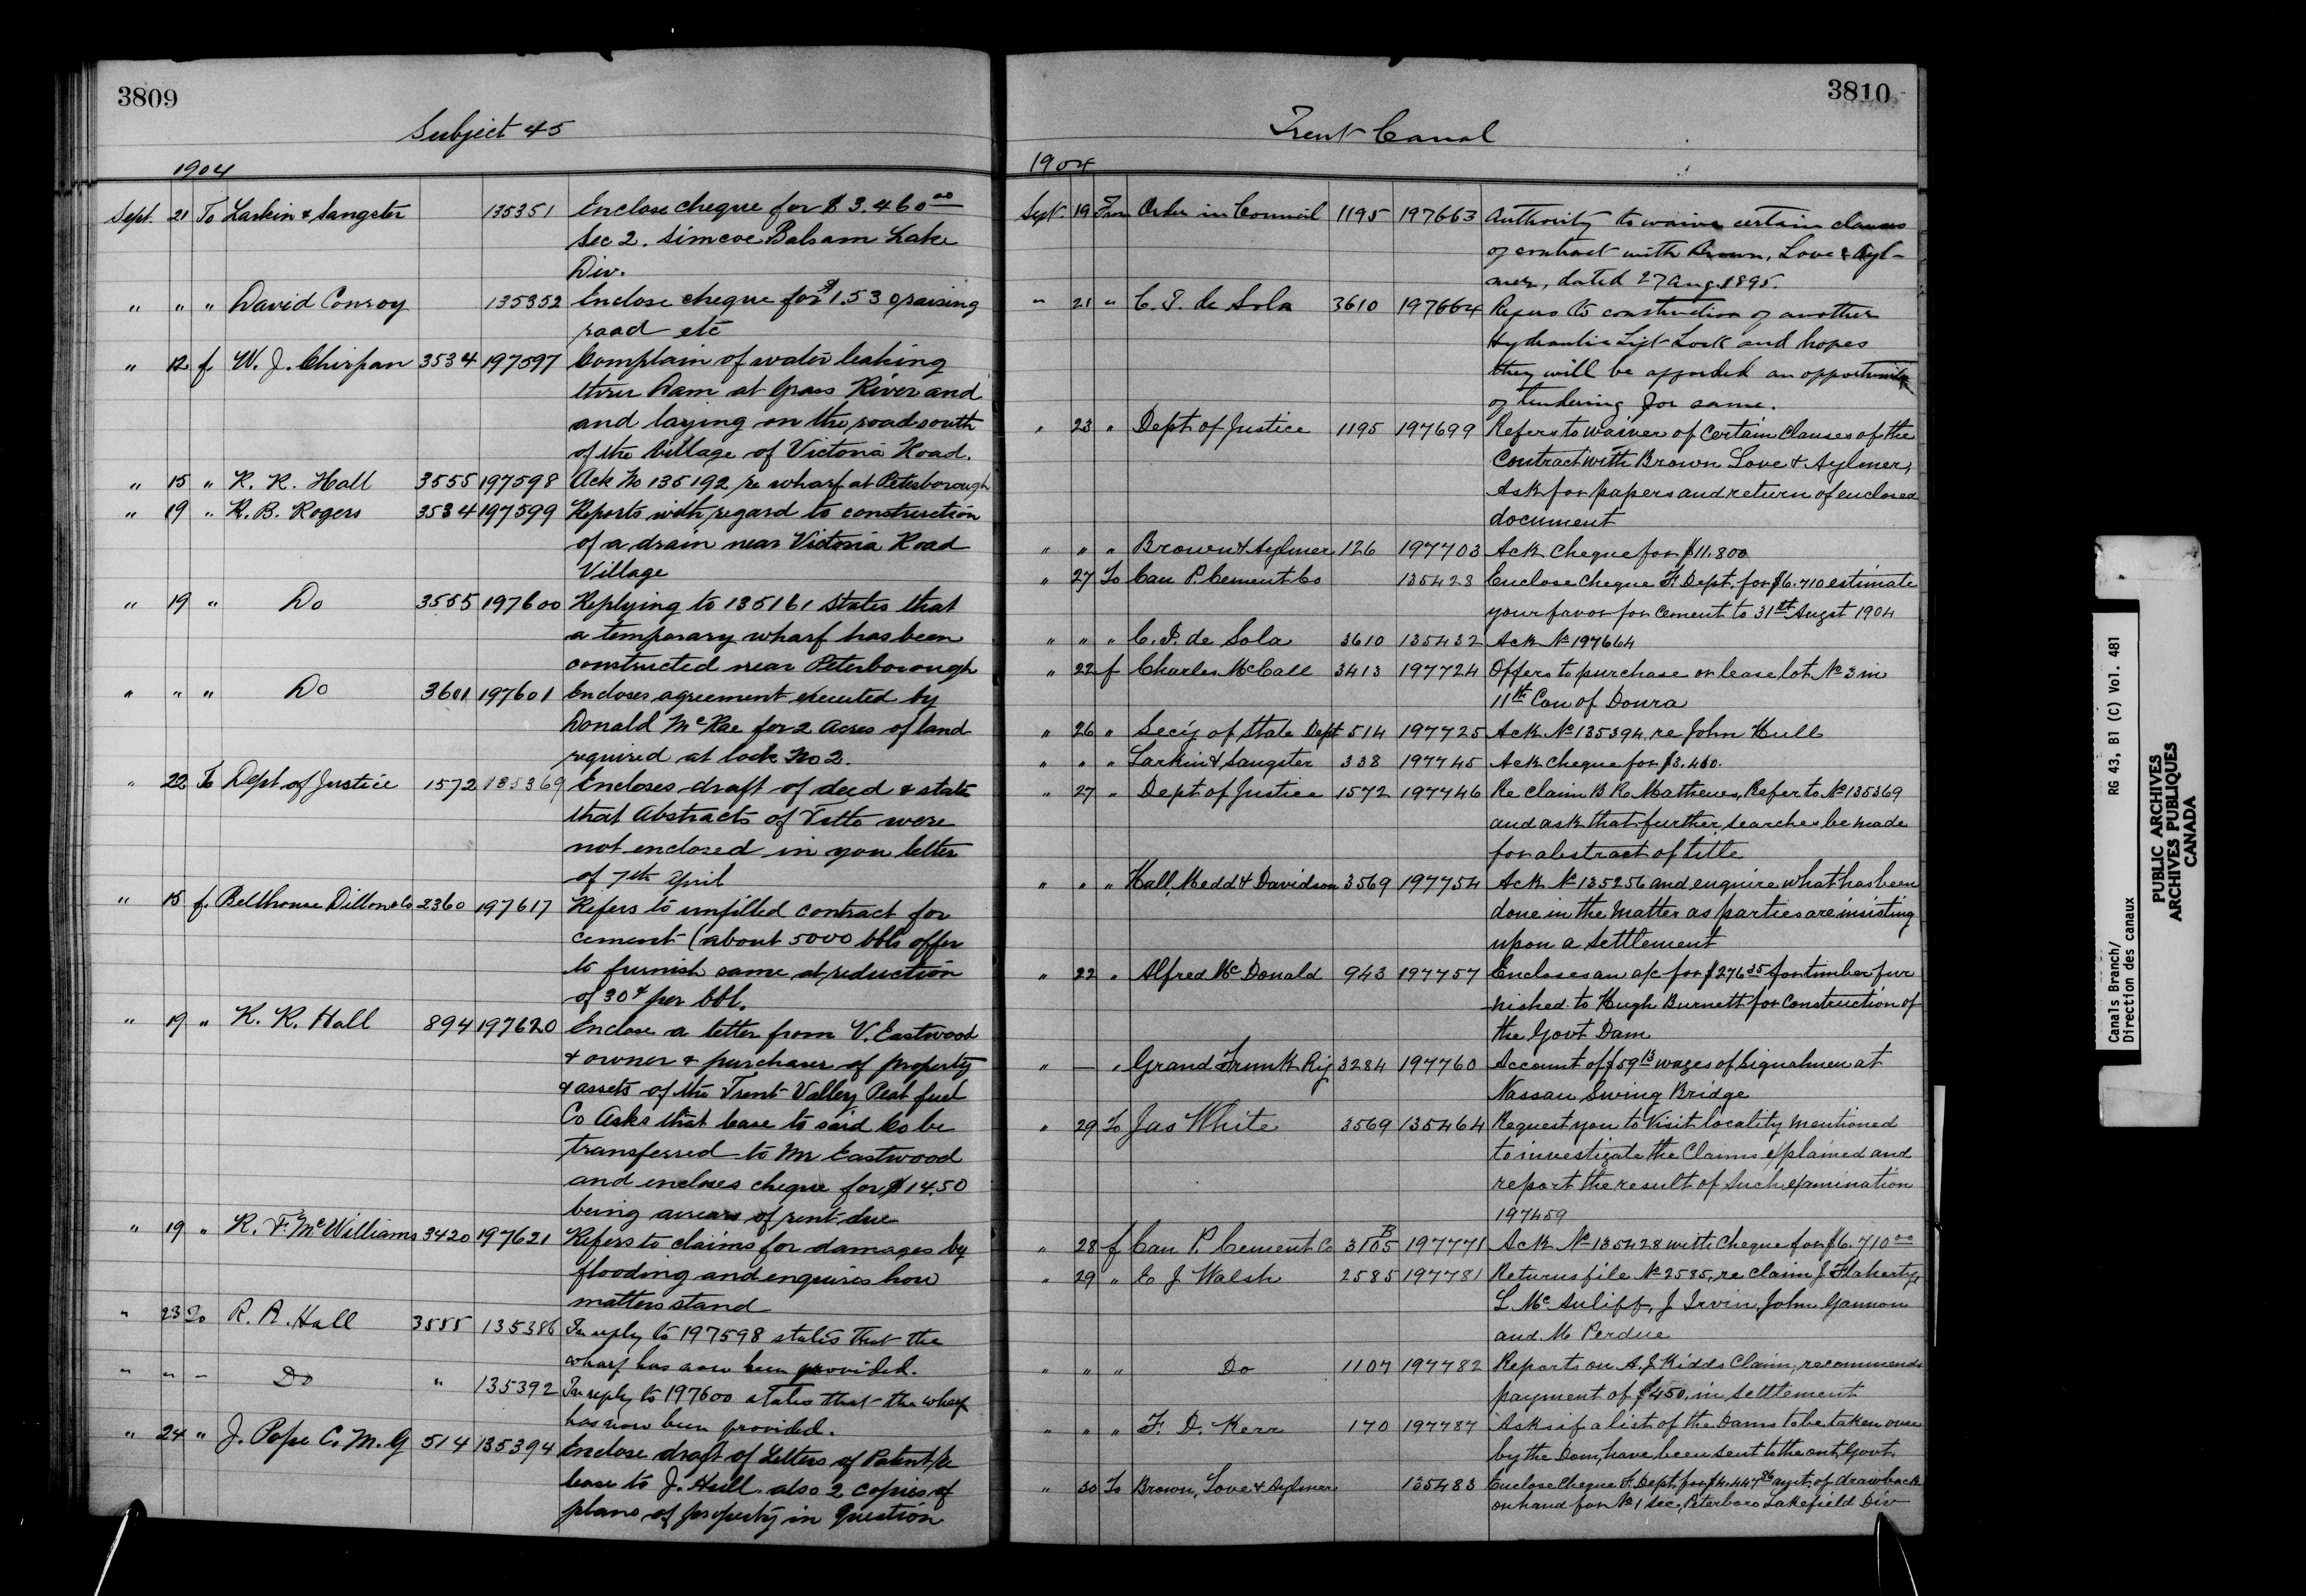 3809
Subject 45
1904
Sept. 21 To Larkin & Sangster 135351 Enclose cheque for $ 3.460 00
Sec 2. Simcoe Balsam Lake
Div.
" " " David Conroy 135352 Enclose cheque for $1.53 0/raising
road etc
" 12 f W. J. Chirpan 3534 197597 Complain of water leaking
thru Dam at Grass River and
and laying on the road south
of the Village of Victoria Road.
" 15 " R. R. Hall 3555 197598 Ack No 135192 re wharf at Peterborough
" 19 " R. B. Rogers 3534 197599 Reports with regard to construction
of a drain near Victoria Road
Village
" 19 " Do 3555 197600 Replying to 135161 states that
a temporary wharf has been
constructed near Peterborough
" " " Do 3601 197601 Encloses agreement executed by
Donald McRae for 2 Acres of land
required at lock No 2.
" 22 To Dept. of Justice 1572 135369 Encloses draft of deed & state
that Abstracts of Title were
not enclosed in you letter
of 7th April
" 15 f. Bellhouse Dillon & Co 2360 197617 Refers to unfilled contract for
cement (about 5000 bbls offer
to furnish same at reduction
of 30¢ per bbl.
" 19 " R. R. Hall 894 197620 Enclose a letter from V. Eastwood
& owner & purchaser of property
& assets of the Trent Valley Peat fuel
Co Asks that lease to said Co be
transferred to Mr Eastwood
and encloses cheque for $14.50
being arrears of rent due
" 19 " R. F. McWilliams 3420 197621 Refers to claims for damages by
flooding and enquires how
matters stand
" 23 To R. R. Hall 3555 135386 In reply to 197598 states that the
wharf has now been provided.
" " - Do " 135392 In reply to 197600 states that the wharf
has now been provided.
" 24 " J. Pope C. M. G 514 135394 Enclose draft of Letters of Patent re
lease to J. Hull also 2 copies of
plans of property in Question
3810
Trent Canal
1904
Sept. 19 From Order in Council 1195 197663 Authority to waive certain clauses
of contract with Brown, Love & Ayl-
mer, dated 27 Aug. 1895.
" 21 " C. I. de Sola 3610 197664 Refers to construction of another
Hydraulic Lift Lock and hopes
they will be afforded an opportunity
of tendering for same.
" 23 " Dept of Justice 1195 197699 Refers to waiver of certain Clauses of the
Contract with Brown Love & Aylmer,
Ask for papers and return of enclosed
document
" " " Brown & Aylmer 126 197703 Ack cheque for $11.800
" 27 To Can P. Cement Co 135428 Enclose Cheque F. Dept. for $6.710 estimate
your favor for Cement to 31st Augst 1904
" " " C. I. de Sola 3610 135432 Ack No 197664
" 22 f Charles McCall 3413 197724 Offers to purchase or lease lot No 3 in
11th Con of Douro
" 26 " Sec'y of State Dept 514 197725 Ack No 135394 re John Hull
" " " Larkin & Sangster 338 197745 Ack cheque for $3.460.
" 27 " Dept of Justice 1572 197746 Re claim B R Mathews, Refer to No 135369
and ask that further searches be made
for abstract of title
" " " Hall, Medd & Davidson 3569 197754 Ack No 135256 and enquire what has been
done in the matter as parties are insisting
upon a Settlement
" 22 " Alfred McDonald 943 197757 Encloses an a/c for $276 35 for timber fur
nished to Hugh Burnett for Construction of
the Govt Dam
" — " Grand Trunk Ry 3284 197760 Account of $59 13 wages of Signalmen at
Nassau Swing Bridge
" 29 To Jas White 3569 135464 Request you to Visit locality mentioned
to investigate the Claims explained and
report the result of such examination
197459
" 28 f Can P. Cement Co 3105 B 197771 Ack No 135428 with Cheque for $6.710 00
" 29 " E J Walsh 2585 197781 Returns file No 2585, re claim J. Flaherty,
L McAuliff, J Irvin, John Gannon
and M Perdue
" " " Do 1107 197782 Reports on A. J. Kidds Claim, recommends
payment of $450. in Settlement
" " " F. D. Kerr 170 197787 Asks if a list of the Dams to be taken over
by the Dom, have been sent to the Ont. Govt.
" 30 To Brown, Love & Aylmer 135483 Enclose Cheque F. Dept. for $4.447 86 ayt. of drawback
on hand for No 1 Sec, Peterboro Lakefield Div
Canals Branch/ RG 43, B1 (C) Vol. 481
Direction des canaux
PUBLIC ARCHIVES
ARCHIVES PUBLIQUES
CANADA